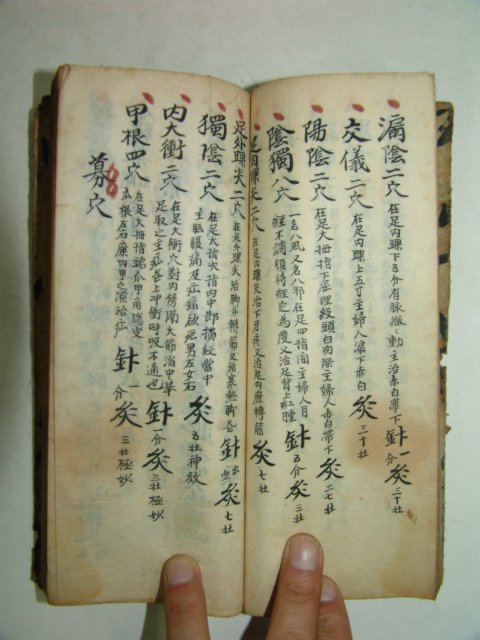 漏陰二穴 在足內踝下五分有脉微〻動主治赤白帶下 針一分灸三十壯
交儀二穴 在足內踝上五寸主婦人漏下赤白 灸三十壯
陽陰二穴 在足大拇指下屈理紋頭白肉際主婦人赤白帶下 灸二七壯
陰獨八穴 一名八風又名八邪在足四指間主婦人月經不調須待經定為度又治足背上紅腫 針五分灸三壯
足內踝尖二穴 在足內踝尖治下牙疼又治足內廉轉筋 灸七壯
足外踝尖二穴 在足外踝尖治脚外轉筋又治寒熱脚 針出血灸七壯
獨陰二穴 在足大指次指內中節橫紋當中主腹痛及疝痛欲死男左女右 灸五壯神效
內大衝二穴 在足大衝穴對內傍隔大筋陷中舉足取之主疝上冲衝時吸不通也 針一分灸三壯極妙
甲根四穴 在足大拇指端爪甲角隱皮爪根左右廉內甲之治疝 針一分灸三壯極妙
募穴